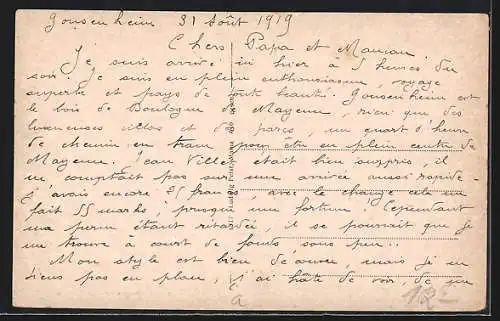 Gonsenheim 31 Août 1919
Chers Papa et Maman.
Je suis arrivé ici hier à 5 heures du
soir. Je suis en plein enthousiasme, voyage
superbe et pays de toute beauté. Gonsenheim est
le bois de Boulogne de Mayence, rien que des
luxueuses villas et des parcs, un quart d'heure
de chemin en tram pour être en plein centre de
Mayence. Jean était bien surpris, il
ne comptait pas sur une arrivée aussi rapide.
j'avais encore 25 francs, avec le change cela me
fait 55 marks, presque une fortune. Cependant
ma perm étant retardée, il se pourrait que je
me trouve à court de fonds sous peu.
Mon style est bien décousu, mais je ne
tiens pas en place, j'ai hâte de voir, de me
à